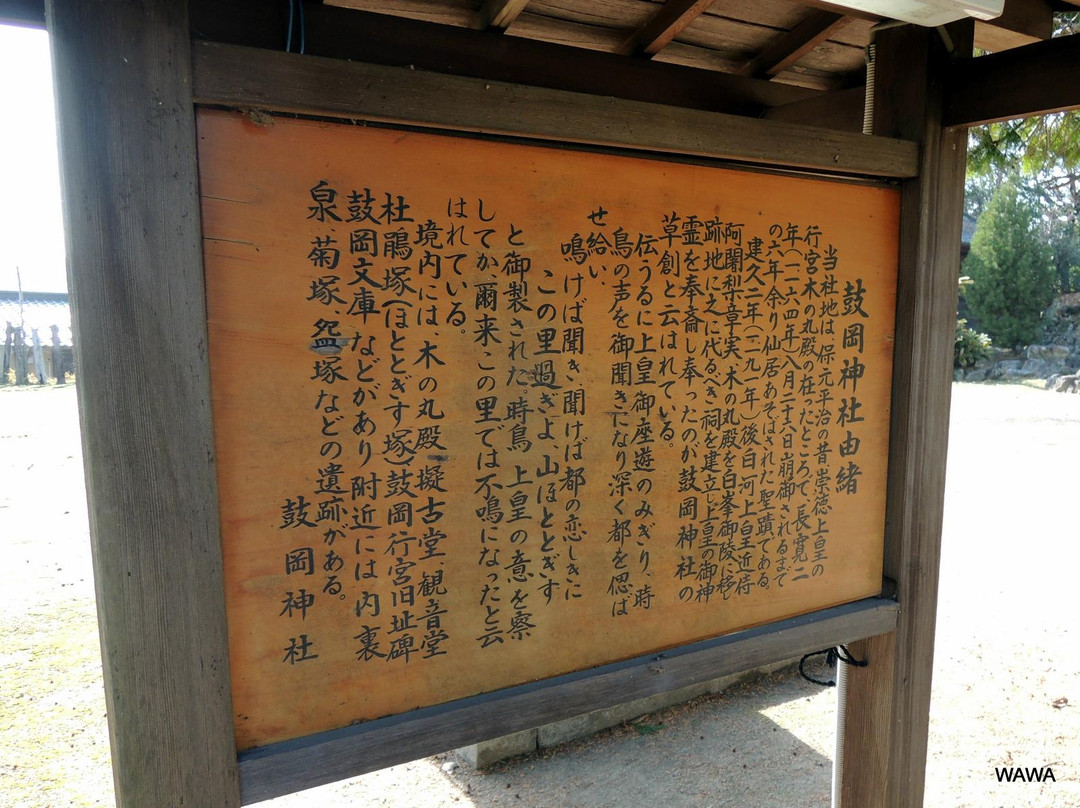 鼓岡神社由緒
当社地は、保元平治の昔崇徳上皇の
行宮木の丸殿の在ったところで、長寛二
年(一一六四年)八月二十六日崩御されるまで
の六年余り仙居あそばされた聖蹟である。
建久二年(一一九一年)後白河上皇近侍
阿闍梨章実、木の丸殿を白峯御陵に移し
跡地に之に代るべき祠を建立し上皇の御神
霊を奉斎し奉ったのが鼓岡神社の
草創と云はれている。
伝うるに上皇御座遊のみぎり、時
鳥の声を御聞きになり深く都を偲ば
せ給い、
鳴けば聞き、聞けば都の恋しきに
この里過ぎよ、山ほととぎす
と御製された。時鳥、上皇の意を察
してか、爾来この里では不鳴になったと云
はれている。
境内には、木の丸殿、擬古堂、観音堂
杜鵑塚(ほととぎす塚)鼓岡行宮旧址碑
鼓岡文庫などがあり附近には内裏
泉、菊塚、盌塚などの遺跡がある。
鼓岡神社
WAWA